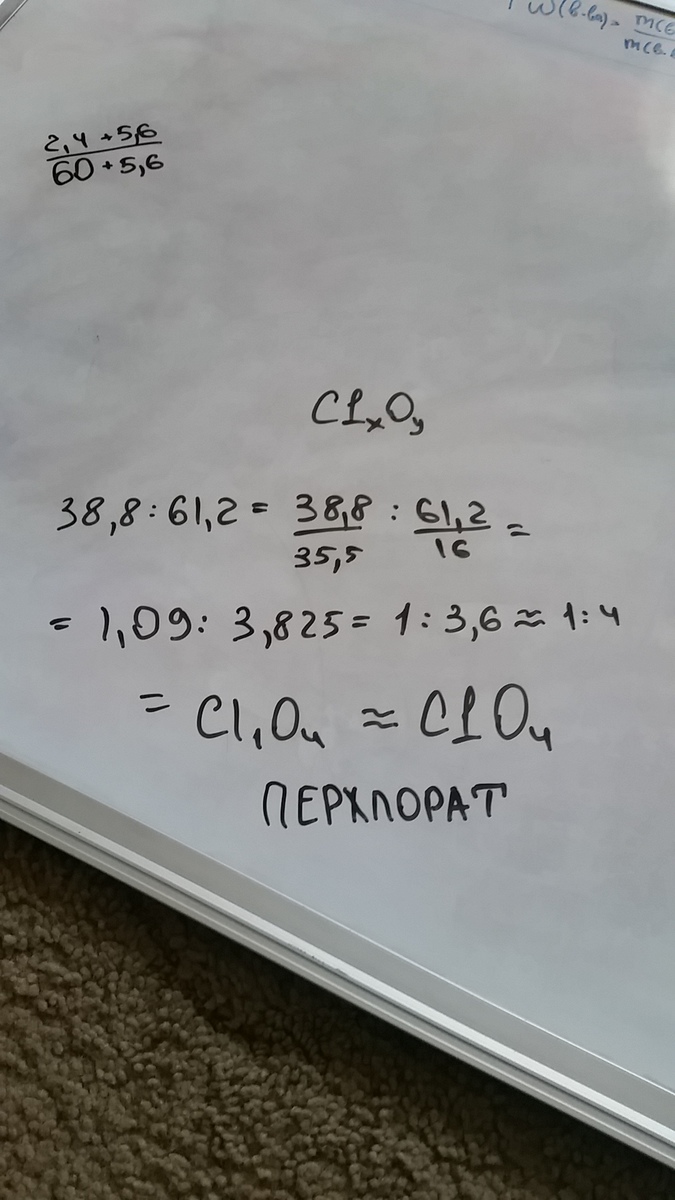 W(в-ва)= m(
m(в.
2,4 + 5,6
60 + 5,6
ClₓOᵧ
38,8 : 61,2 = 38,8/35,5 : 61,2/16 =
= 1,09 : 3,825 = 1 : 3,6 ≈ 1:4
= Cl₁O₄ ≈ ClO₄
ПЕРХЛОРАТ